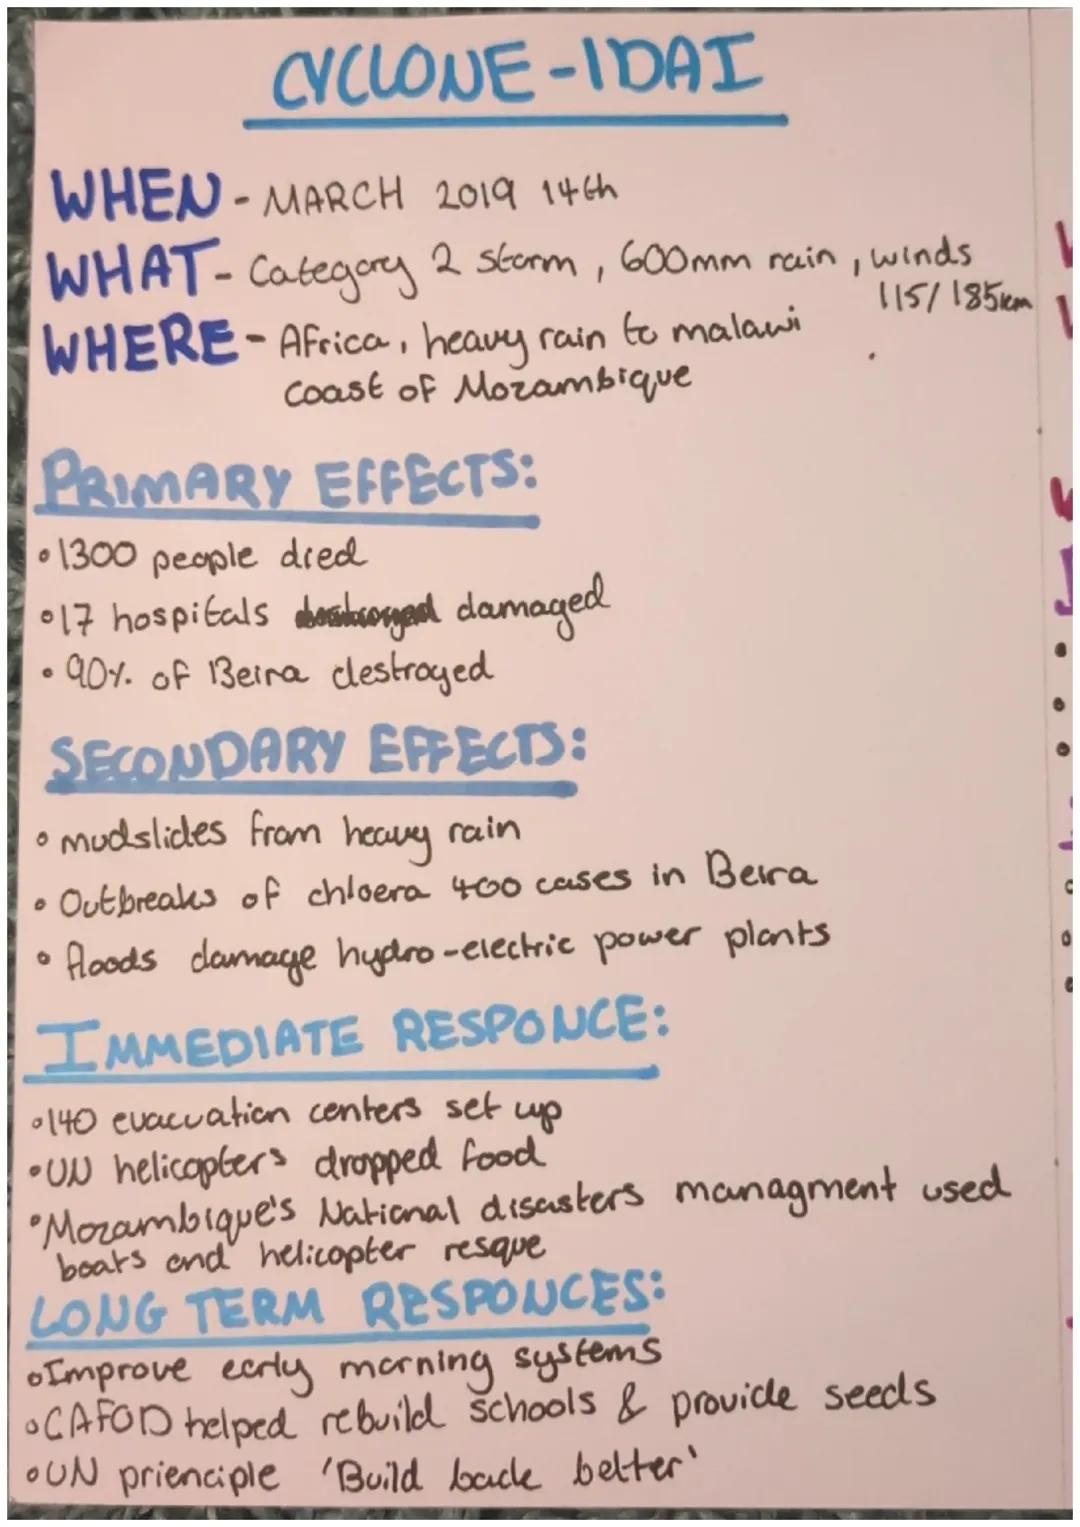 CYCLONE-IDAI
WHEN - MARCH 2019 14th
WHAT - Category 2 storm, 600mm rain, winds
115/185km
WHERE - Africa, heavy rain to malawi
coast of Mozambique
PRIMARY EFFECTS:
• 1300 people died
• 17 hospitals damaged
• 90% of Beira destroyed
SECONDARY EFFECTS:
• mudslides from heavy rain
• Outbreaks of chloera 400 cases in Beira
• floods damage hydro-electric power plants
IMMEDIATE RESPONCE:
• 140 evacuation centers set up
• UN helicopters dropped food
• Mozambique's National disasters managment used
boats and helicopter resque
LONG TERM RESPONCES:
• Improve early morning systems
• CAFOD helped rebuild schools & provide seeds
• UN prienciple 'Build back better'